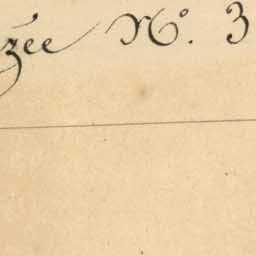 zée N°. 3